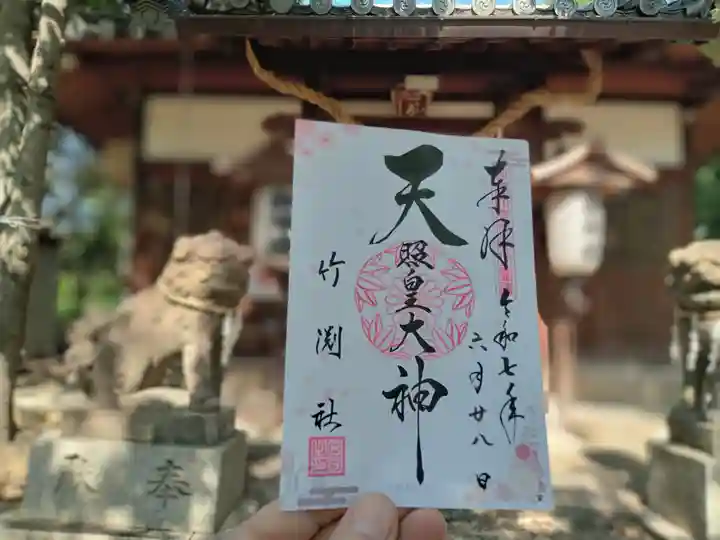 奉拝
令和七年
六月廿八日
天照皇大神
竹渕社
奉